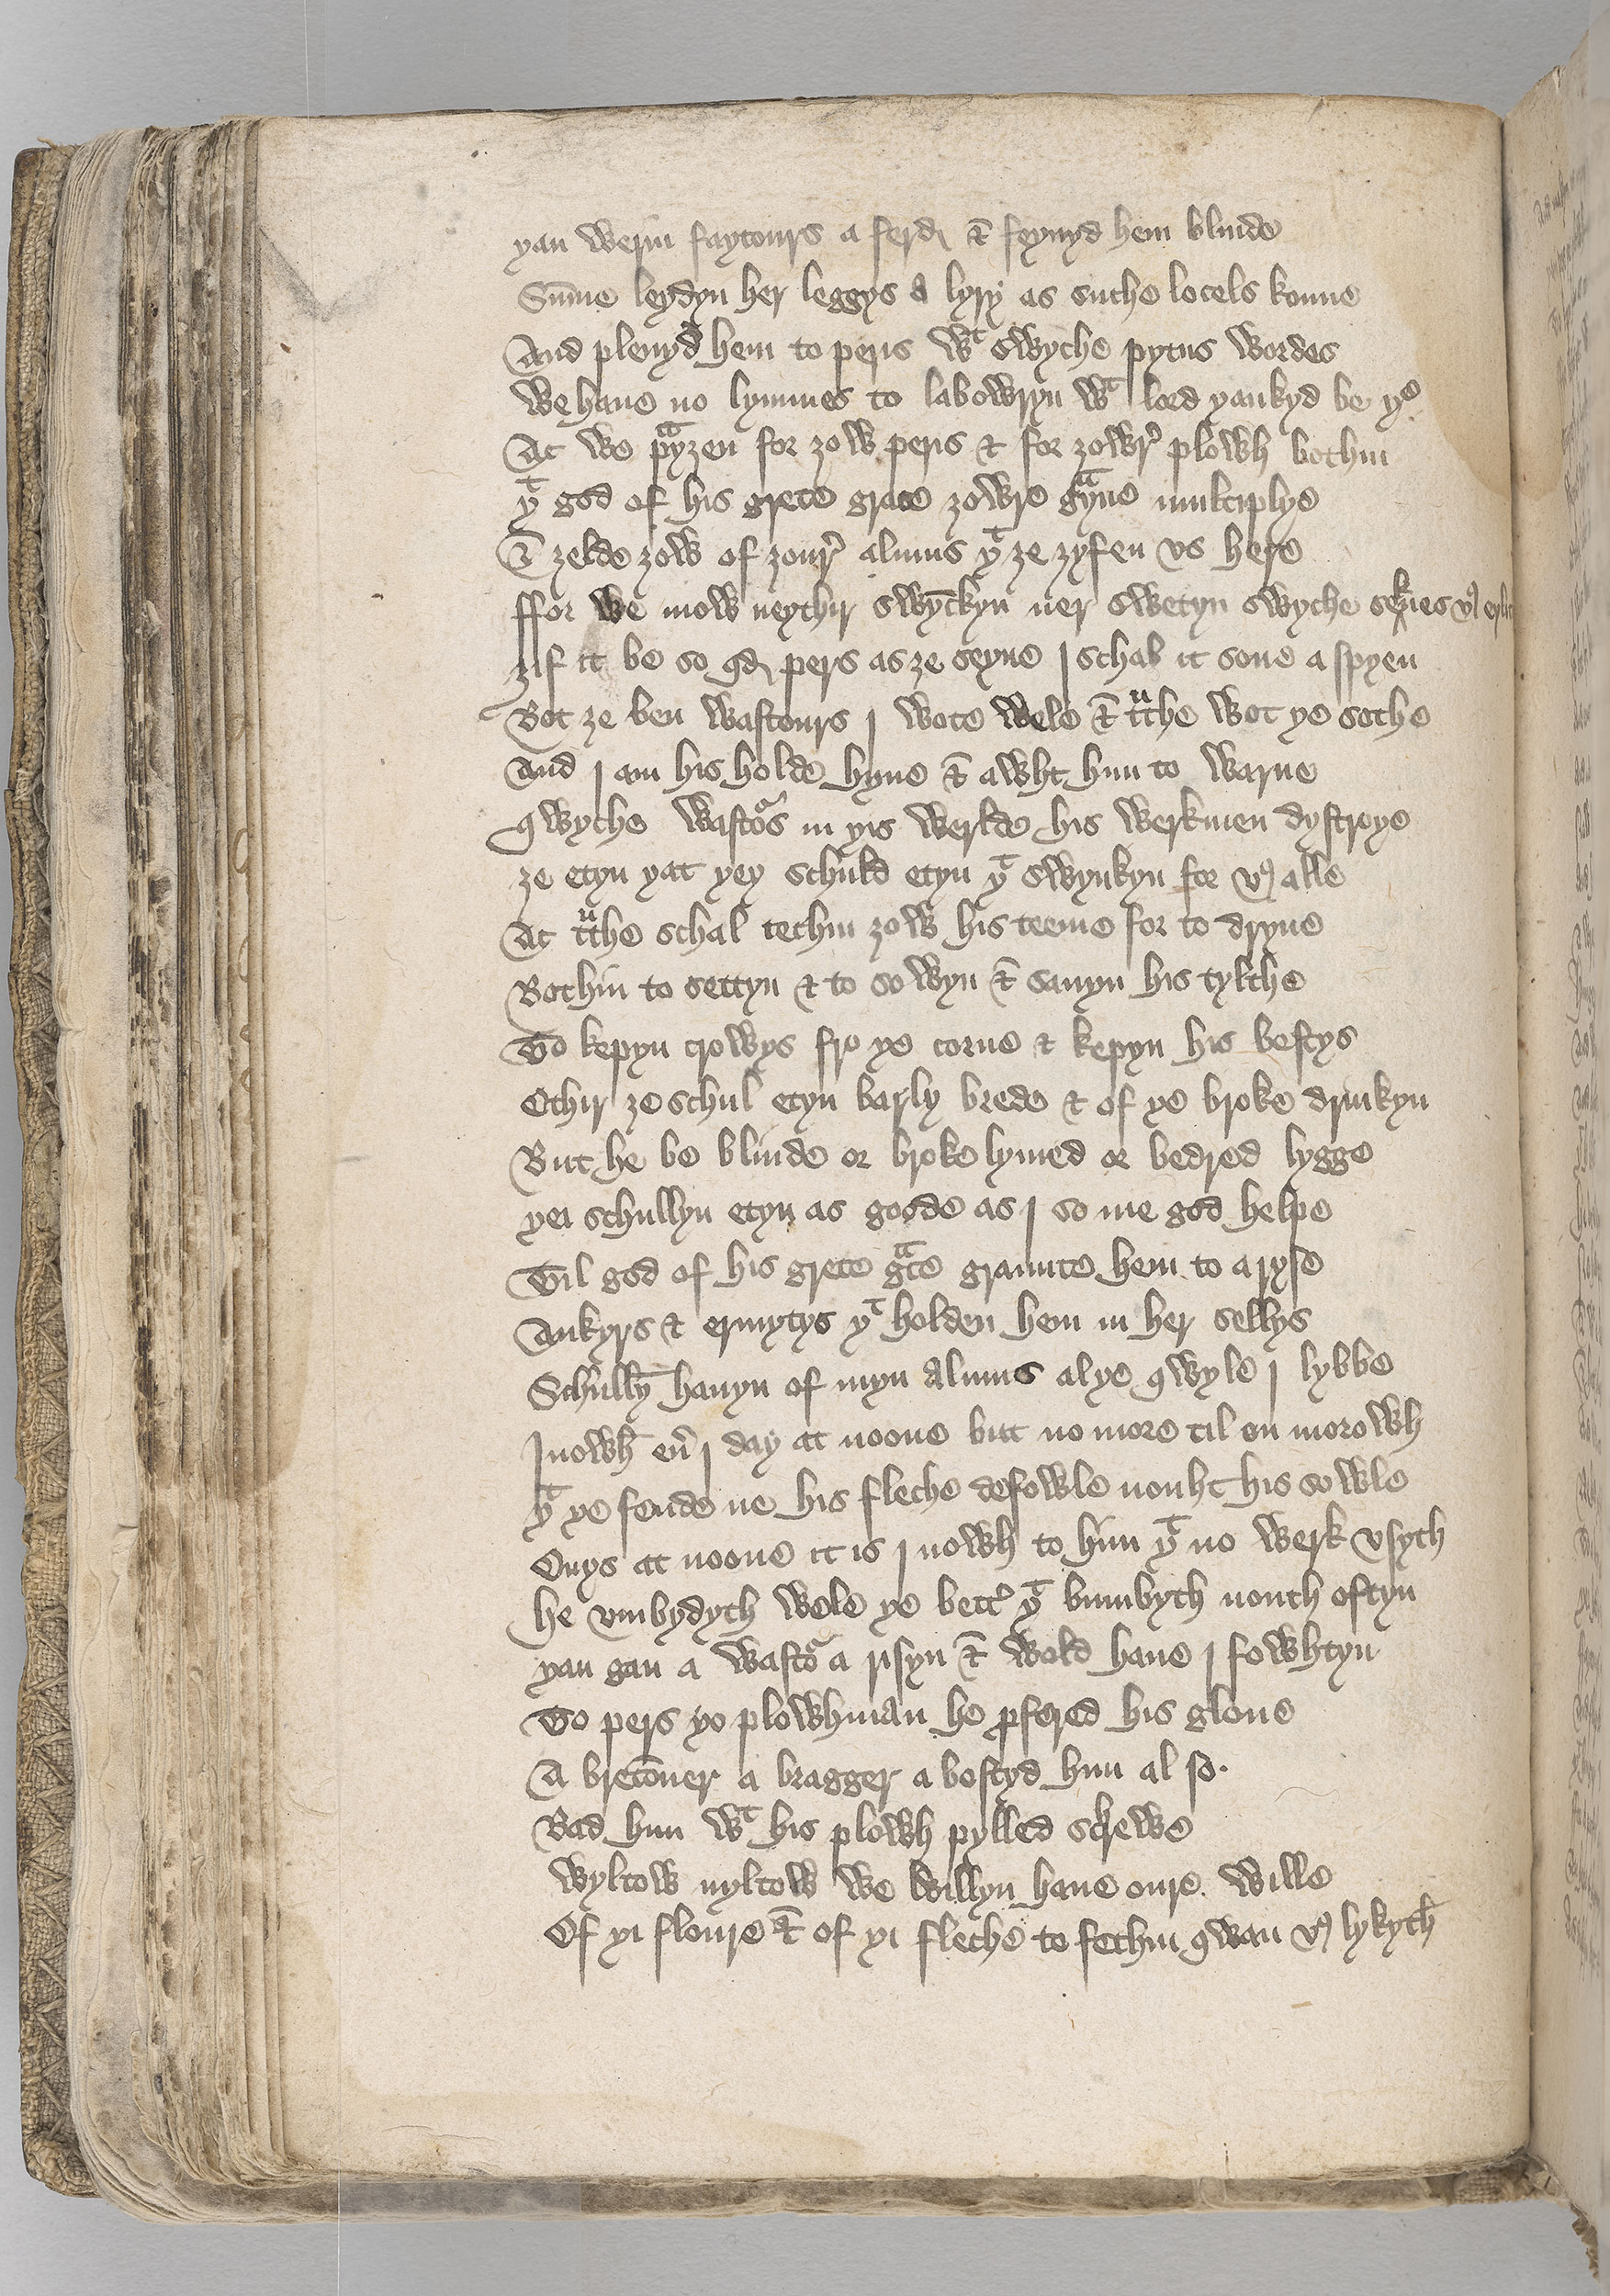 yan werin faytours a ferd & feynyd hem blinde
Sūme leydyn her leggys a lyry as suche locels konne
And plenyd hem to pers wᵗ swyche pytus wordes
We haue no lymmes to labowryn wᵗ lord yankyd be yᵉ
Ac we pᵃyzen for zow pers & for zowrᵉ plowh bothin
yᵗ god of his grete grace zowre gᵃyne multiplye
& zelde zow of zourᵉ almus yᵗ ze zyfen vs here
ffor we mow neythir swynkyn ner swetyn swyche seknes vs eylit
zif it be so qd pers as ze seyne I schal it sone a spyen
Bot ze ben wastours I wote wele & tᵘthe wot ye sothe
And I am his holde hyne & awht him to warne
qwyche wastoʳs in yis werlde his werkmen dystroye
ze etyn yat yey schuld etyn yᵗ swynkyn for vs alle
Ac tᵘthe schal techin zow his teeme for to dryue
Bothin to settyn & to sowyn & sauyn his tylthe
To kepyn crowys fro ye corne & kepyn his bestys
Othir ze schul etyn barly brede & of ye broke drinkyn
But he be blinde or broke lymed or bedred lygge
yei schullyn etyn as goode as I so me god helpe
Til god of his grete gᵃce graunte hem to a ryse
Ankyrs & ermytys yᵗ holden hem in her sellys
Schully̅ hauyn of myn almus al ye qwyle I lybbe
Inowh eu̓ I day at noone but no more til on morowh
yᵗ ye fende ne his fleche defowle nouht his sowle
Onys at noone it is I nowh to him yᵗ no werk vsyth
He vmbydyth wele ye bett̓ yᵗ bumbyth nouth oftyn
yan gan a wastoʳ a risyn & wold haue I fowhtyn
To pers ye plowhman he ꝓfered his gloue
A bretoner a bragger a bostyd him al so.
Bad him wᵗ his plowh pylled schrewe
Wyltow nyltow we willyn haue oure wille
Of yi floure & of yi fleche to fechin qwan vs lykyth